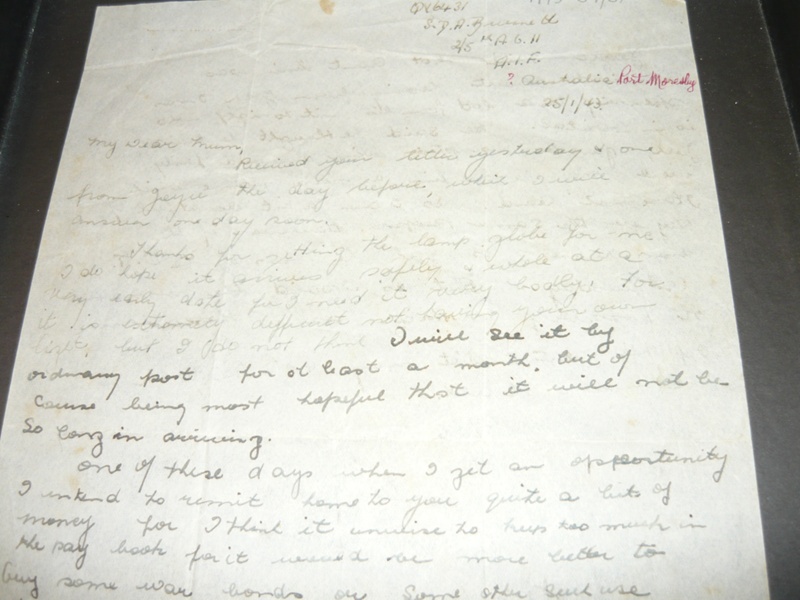 QX6431
Sgt A. Bennett
2/5th A.G.H
A.I.F.
? Australia Port Moresby
25/1/43.
My Dear Mum,
Received your letter yesterday & one
from the day before, which I will
answer one day soon.
Thanks for getting the lamp globe for me!
I do hope it arrives safely & whole at a
very early date for I need it very badly, for
it is extremely difficult not having your own
light, but I do not think I will see it by
ordinary post for at least a month. but of
cause being most hopeful that it will not be
so long in arriving.
One of these days when I get an opportunity
I intend to remit home to you quite a bits of
money for I think it unwise to keep too much in
the pay book for it would be more better to
buy some war bonds or some other such use